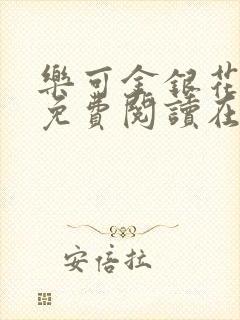 樂可金銀花
免費閱讀在
安倍拉